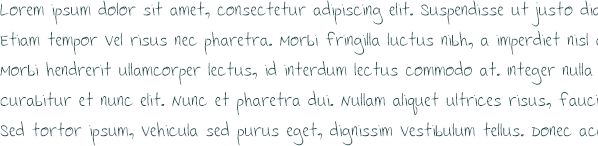 Lorem ipsum dolor sit amet, consectetur adipiscing elit. Suspendisse ut justo dic
Etiam tempor vel risus nec pharetra. Morbi fringilla luctus nibh, a imperdiet nisl
Morbi hendrerit ullamcorper lectus, id interdum lectus commodo at. Integer nulla
curabitur et nunc elit. Nunc et pharetra dui. Nullam aliquet ultrices risus, fauci
Sed tortor ipsum, vehicula sed purus eget, dignissim vestibulum tellus. Donec acc